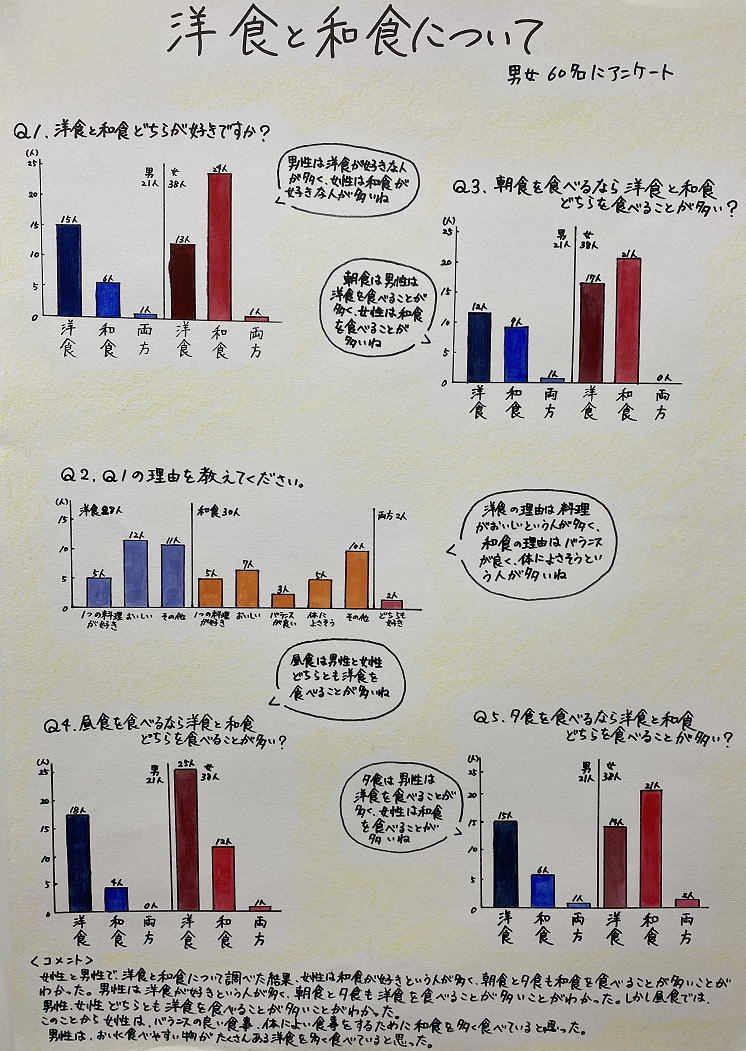 洋食と和食について
男女60名にアンケート
Q1.洋食と和食どちらが好きですか?
(人)
25
20
15
10
5
0
男
21人
女
38人
15人
6人
1人
13人
24人
1人
洋食
和食
両方
洋食
和食
両方
男性は洋食が好きな人
が多く、女性は和食が
好きな人が多いね
Q3.朝食を食べるなら洋食と和食
どちらを食べることが多い?
(人)
25
20
15
10
5
0
男
21人
女
38人
12人
9人
1人
17人
21人
0人
洋食
和食
両方
洋食
和食
両方
朝食は男性は
洋食を食べることが
多く、女性は和食
を食べることが
多いね
Q2.Q1の理由を教えてください。
(人)
15
10
5
0
洋食28人
和食30人
両方2人
5人
12人
11人
5人
7人
3人
5人
10人
2人
1つの料理
が好き
おいしい
その他
1つの料理
が好き
おいしい
バランス
が良い
体に
よさそう
その他
どちらも
好き
洋食の理由は料理
がおいしいという人が多く、
和食の理由はバランス
が良く、体によさそうとい
う人が多いね
昼食は男性と女性
どちらとも洋食を
食べることが多いね
Q4.昼食を食べるなら洋食と和食
どちらを食べることが多い?
(人)
25
20
15
10
5
0
男
21人
女
38人
18人
4人
0人
25人
12人
1人
洋食
和食
両方
洋食
和食
両方
Q5.夕食を食べるなら洋食と和食
どちらを食べることが多い?
(人)
25
20
15
10
5
0
男
21人
女
38人
15人
6人
1人
14人
21人
2人
洋食
和食
両方
洋食
和食
両方
夕食は男性は
洋食を食べることが
多く、女性は和食
を食べることが
多いね
<コメント>
女性と男性で、洋食と和食について調べた結果、女性は和食が好きという人が多く、朝食と夕食も和食を食べることが多いことが
わかった。男性は洋食が好きという人が多く、朝食と夕食も洋食を食べることが多いことがわかった。しかし昼食では、
男性、女性どちらとも洋食を食べることが多いことがわかった。
このことから女性は、バランスの良い食事、体によい食事をするために和食を多く食べていると思った。
男性は、おいれ食べやすい物がたくさんある洋食を多く食べていると思った。